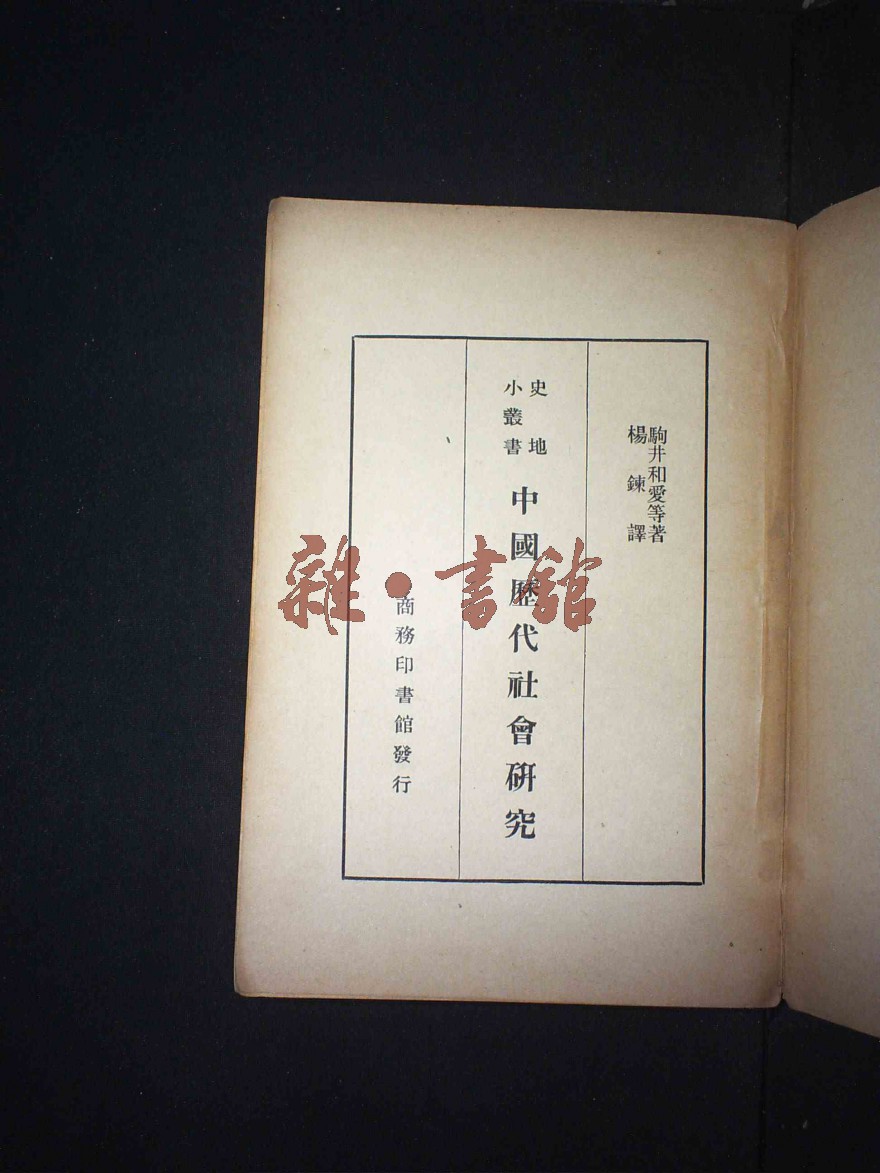 駒井和愛等著
楊鍊譯
史地
小叢書
中國歷代社會研究
商務印書館發行
雜·書館